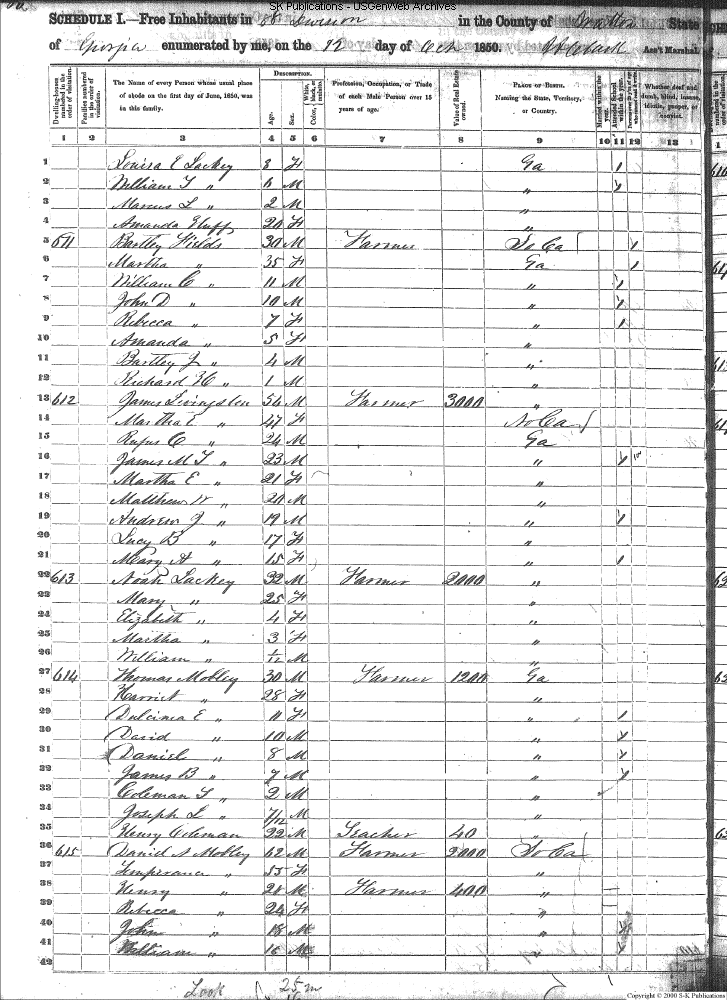 SK Publications - USGenWeb Archives
SCHEDULE I.—Free Inhabitants in 8th Division in the County of State
of Georgia enumerated by me, on the 12 day of Oct 1850. Ass't Marshal
Dwelling-houses numbered in the order of visitation. Families numbered in the order of visitation. The Name of every Person whose usual place of abode on the first day of June, 1850, was in this family. DESCRIPTION. Age. Sex. Color, White, black, or mulatto. Profession, Occupation, or Trade of each Male Person over 15 years of age. Value of Real Estate owned. PLACE OF BIRTH. Naming the State, Territory, or Country. Married within the year. Attended School within the year. Whether deaf and dumb, blind, insane, idiotic, pauper, or convict.
1 2 3 4 5 6 7 8 9 10 11 12 13
1 Louisa E Lackey 8 F Ga /
2 William T " 6 M " /
3 Marcus L " 2 M "
4 Amanda Huff 20 F "
5 611 Bartley Fields 30 M Farmer So Ca /
6 Martha " 35 F Ga /
7 William C " 11 M " /
8 John D " 10 M " /
9 Rebecca " 7 F " /
10 Amanda " 5 F "
11 Bartley J " 4 M "
12 Richard H " 1 M "
13 612 James Livingston 56 M Farmer 3000 "
14 Martha E " 47 F No Ca
15 Rufus C " 24 M Ga
16 James M T " 23 M " /
17 Martha E " 21 F "
18 Matthew W " 20 M "
19 Andrew J " 19 M " /
20 Lucy B " 17 F "
21 Mary A " 15 F " /
22 613 Noah Lackey 32 M Farmer 2000 "
23 Mary " 25 F "
24 Elizabeth " 4 F "
25 Martha " 3 F "
26 William " 1/12 M "
27 614 Thomas Mobley 30 M Farmer 1200 Ga
28 Harriet " 28 F "
29 Dulcinea E " 11 F " /
30 David " 10 M " /
31 Daniel " 8 M " /
32 James B " 7 M " /
33 Coleman T " 2 M "
34 Joseph L " 7/12 M "
35 Henry Coleman 22 M Teacher 40 "
36 615 Daniel A Mobley 62 M Farmer 2000 So Ca
37 Temperance " 55 F "
38 Henry " 21 M Farmer 400 "
39 Rebecca " 24 F "
40 John " 18 M " /
41 William " 16 M " /
42
Look 25 m
Copyright © 2000 S-K Publications